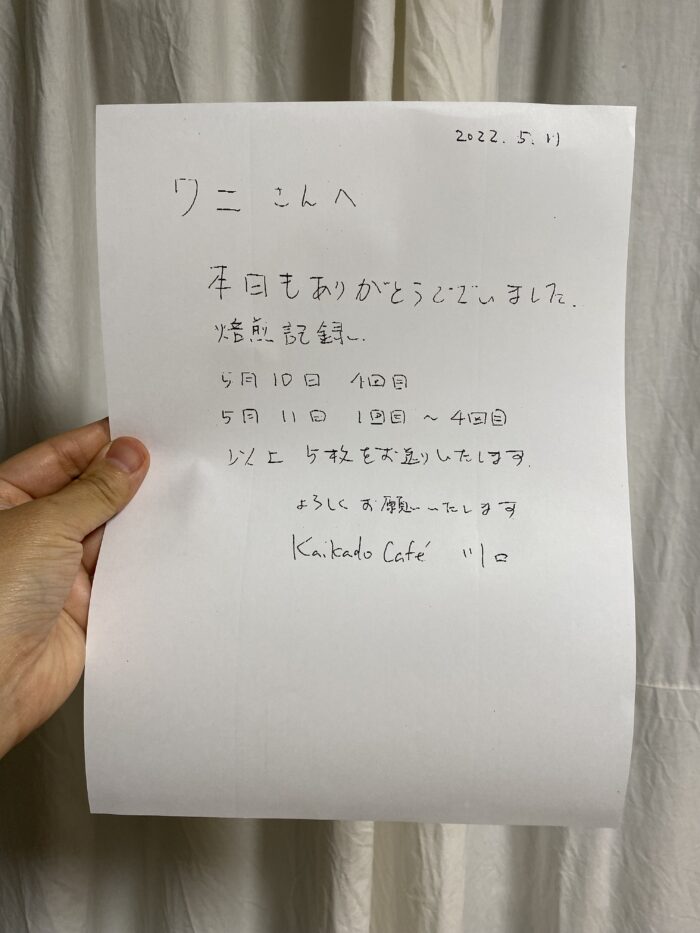 2022.5.11
ワニさんへ
本日もありがとうございました.
焙煎記録、
5月10日 4回目
5月11日 1回目～4回目
以上 5枚をお送りいたします.
よろしくお願いいたします
Kaikado Café 川口